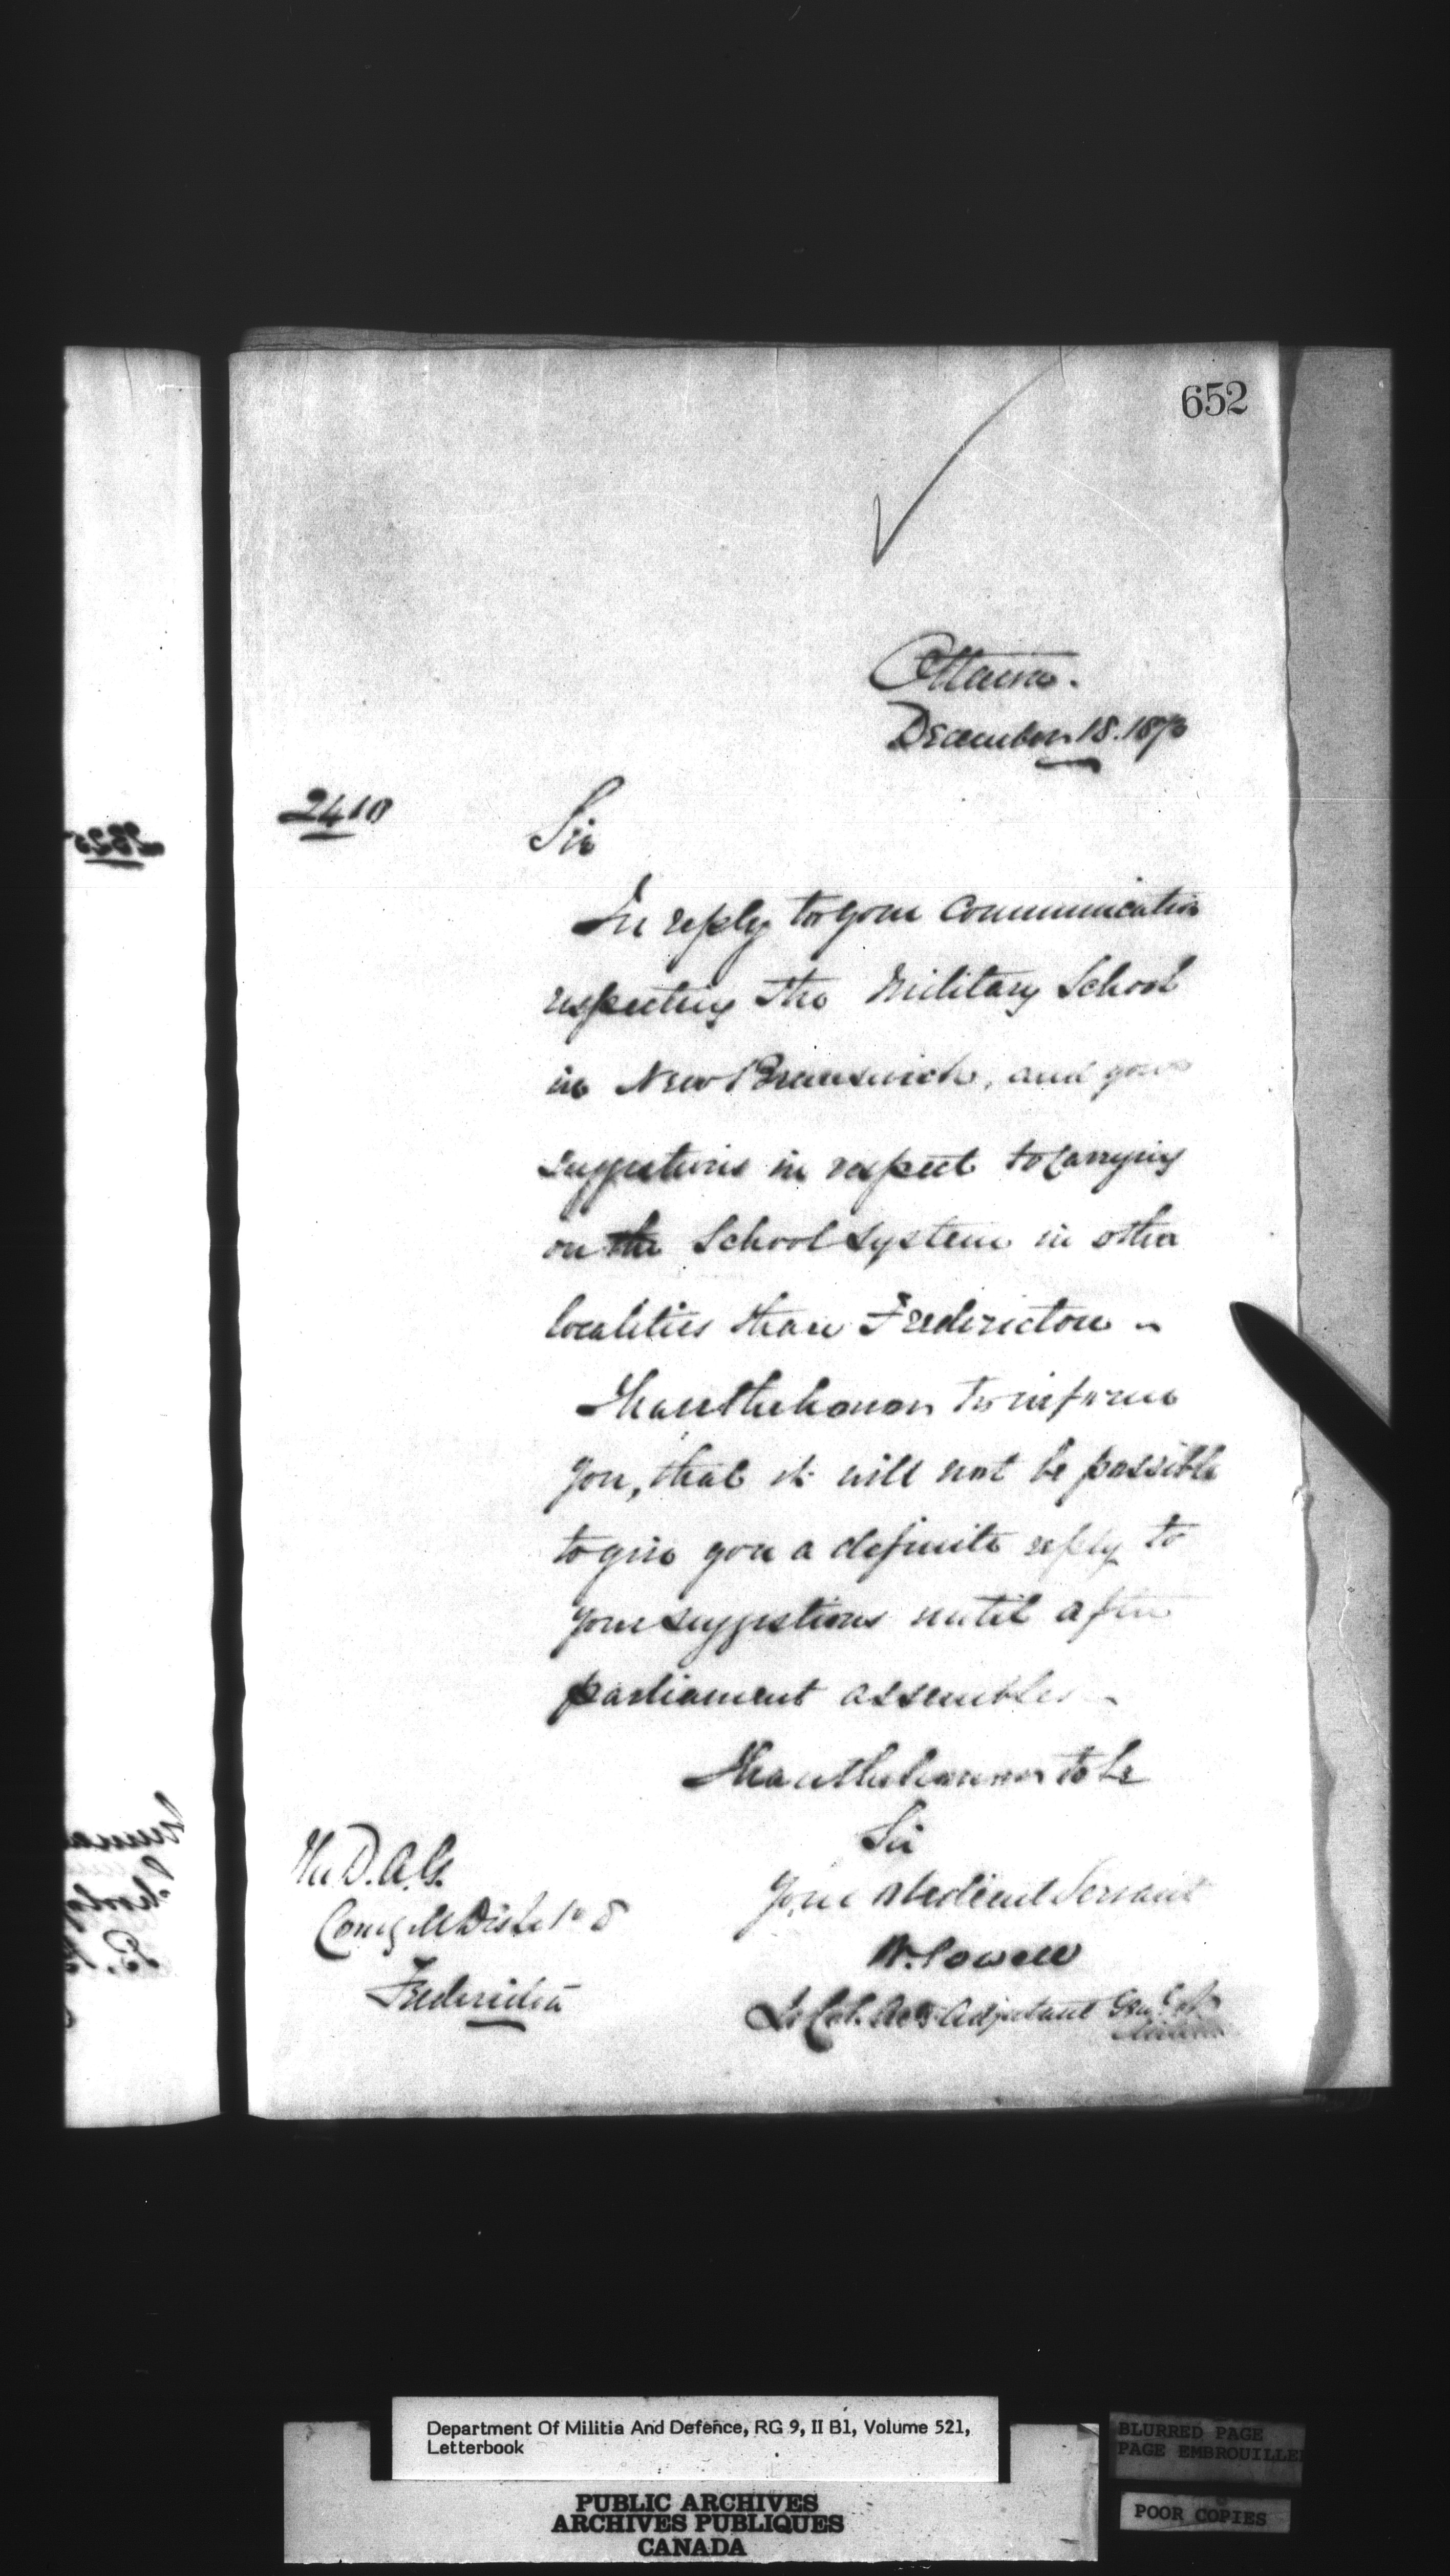 652
Ottawa.
December 18. 1873
2410
Sir
In reply to your Communication
respecting the Military School
in New Brunswick, and your
suggestions in respect to Carrying
on the School System in other
localities than Fredericton -
I have the honor to inform
you, that it will not be possible
to give you a definite reply to
your suggestions until after
parliament assembles -
I have the honor to be
Sir
Your obedient Servant
W. Powell
Lt Col. Actg Adjutant Genl of
The D.A.G.
Comg M Dist No 8
Fredericton
Department Of Militia And Defence, RG 9, II B1, Volume 521,
Letterbook
PUBLIC ARCHIVES
ARCHIVES PUBLIQUES
CANADA
BLURRED PAGE
PAGE EMBROUILLEE
POOR COPIES